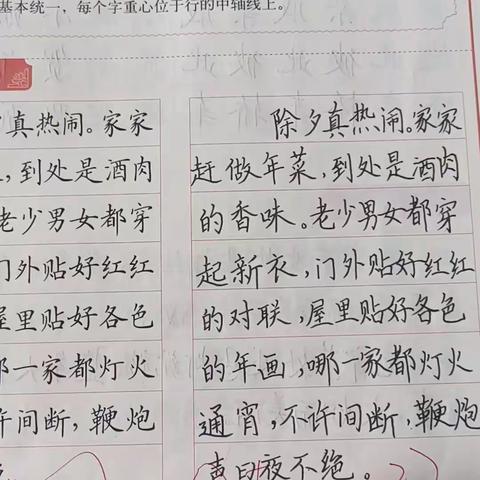 基本统一，每个字重心位于行的中轴线上。
真热闹。家家
，到处是酒肉
老少男女都穿
门外贴好红红
屋里贴好各色
哪一家都灯火
许间断，鞭炮
除夕真热闹。家家
赶做年菜，到处是酒肉
的香味。老少男女都穿
起新衣，门外贴好红红
的对联，屋里贴好各色
的年画，哪一家都灯火
通宵，不许间断，鞭炮
声日夜不绝。